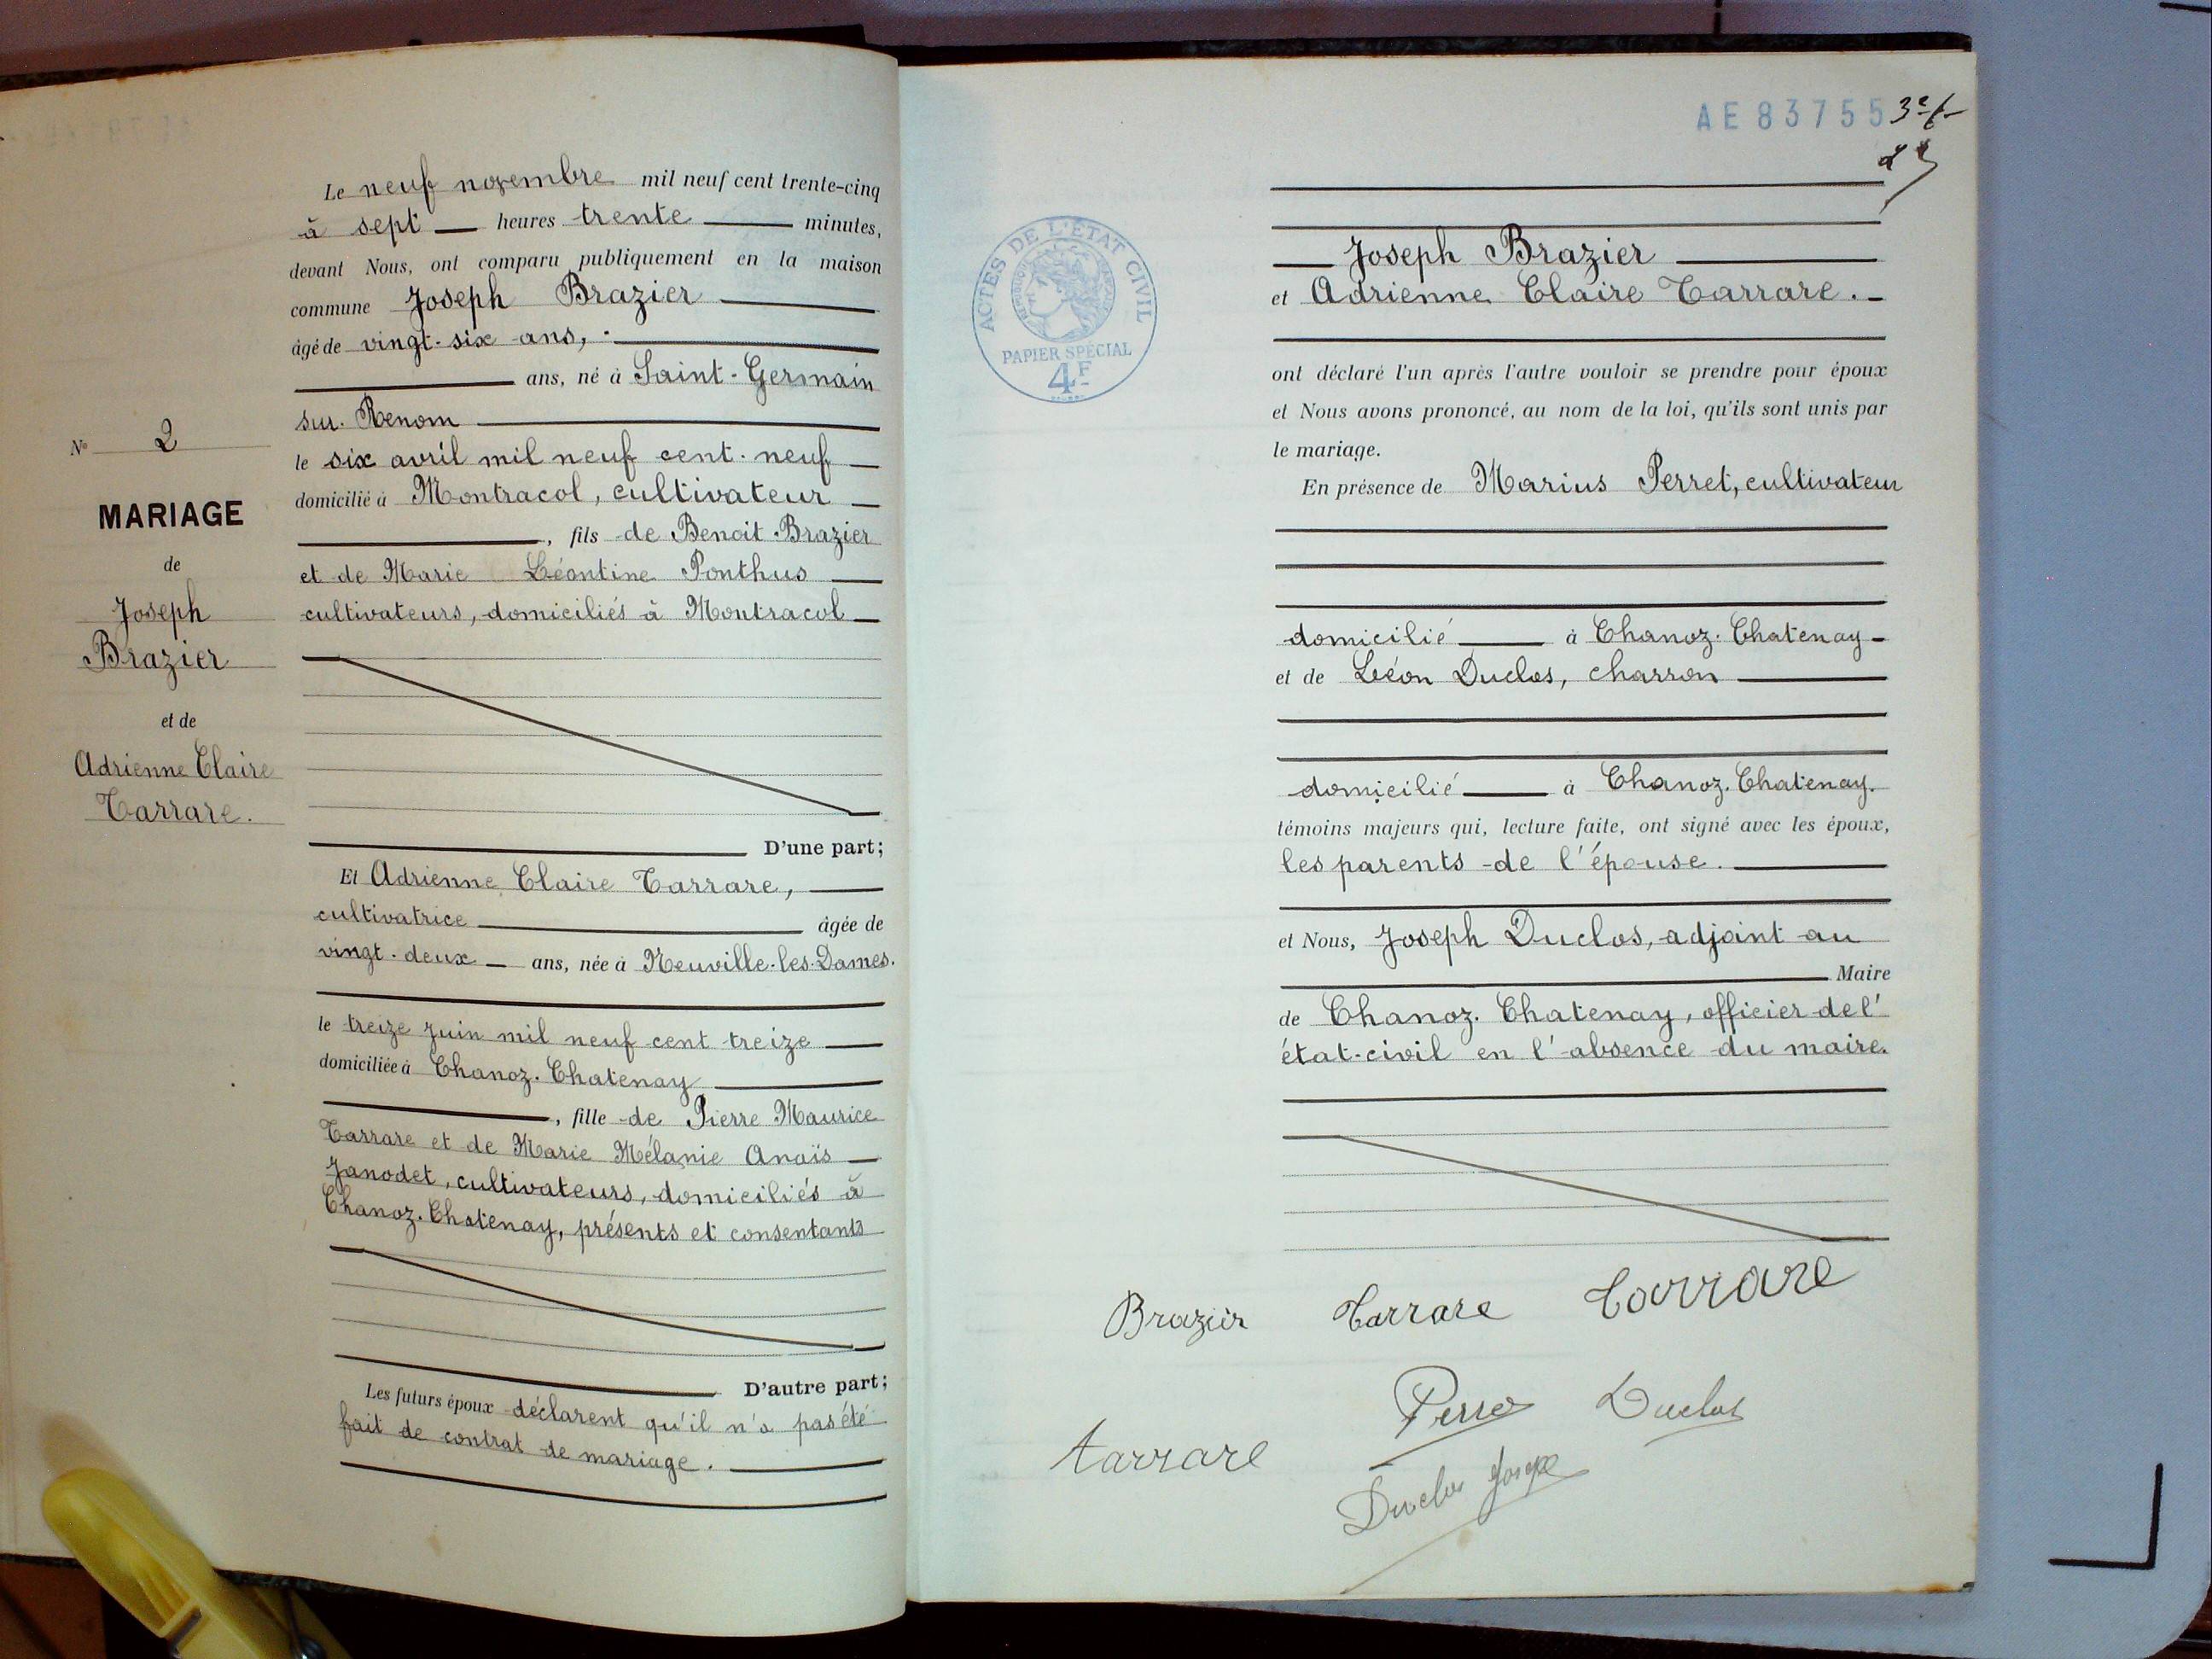 Le neuf novembre mil neuf cent trente-cinq
à sept heures trente minutes,
devant Nous, ont comparu publiquement en la maison
commune Joseph Brazier
âgé de vingt-six ans,
ans, né à Saint-Germain
sur-Renom
le six avril mil neuf cent-neuf
domicilié à Montracol, cultivateur
, fils de Benoit Brazier
et de Marie Léontine Ponthus
cultivateurs, domiciliés à Montracol
D'une part;
Et Adrienne Claire Tarrare,
cultivatrice âgée de
vingt-deux ans, née à Neuville-les-Dames.
le treize juin mil neuf cent treize
domiciliée à Chanoz-Chatenay
, fille de Pierre Maurice
Tarrare et de Marie Mélanie Anaïs
Janodet, cultivateurs, domiciliés à
Chanoz-Chatenay, présents et consentants
D'autre part;
Les futurs époux déclarent qu'il n'a pas été
fait de contrat de mariage.
N° 2
MARIAGE
de
Joseph
Brazier
et de
Adrienne Claire
Tarrare.
AE 83755
ACTES DE L'ÉTAT CIVIL
PAPIER SPÉCIAL
4F
Joseph Brazier
et Adrienne Claire Tarrare.
ont déclaré l'un après l'autre vouloir se prendre pour époux
et Nous avons prononcé, au nom de la loi, qu'ils sont unis par
le mariage.
En présence de Marius Perret, cultivateur
domicilié à Chanoz-Chatenay
et de Léon Duclos, charron
domicilié à Chanoz-Chatenay.
témoins majeurs qui, lecture faite, ont signé avec les époux,
les parents de l'épouse.
et Nous, Joseph Duclos, adjoint au
Maire
de Chanoz-Chatenay, officier de l'
état-civil en l'absence du maire.
Brazier Tarrare Tarrare
Perret Duclos
tarrare
Duclos Joseph